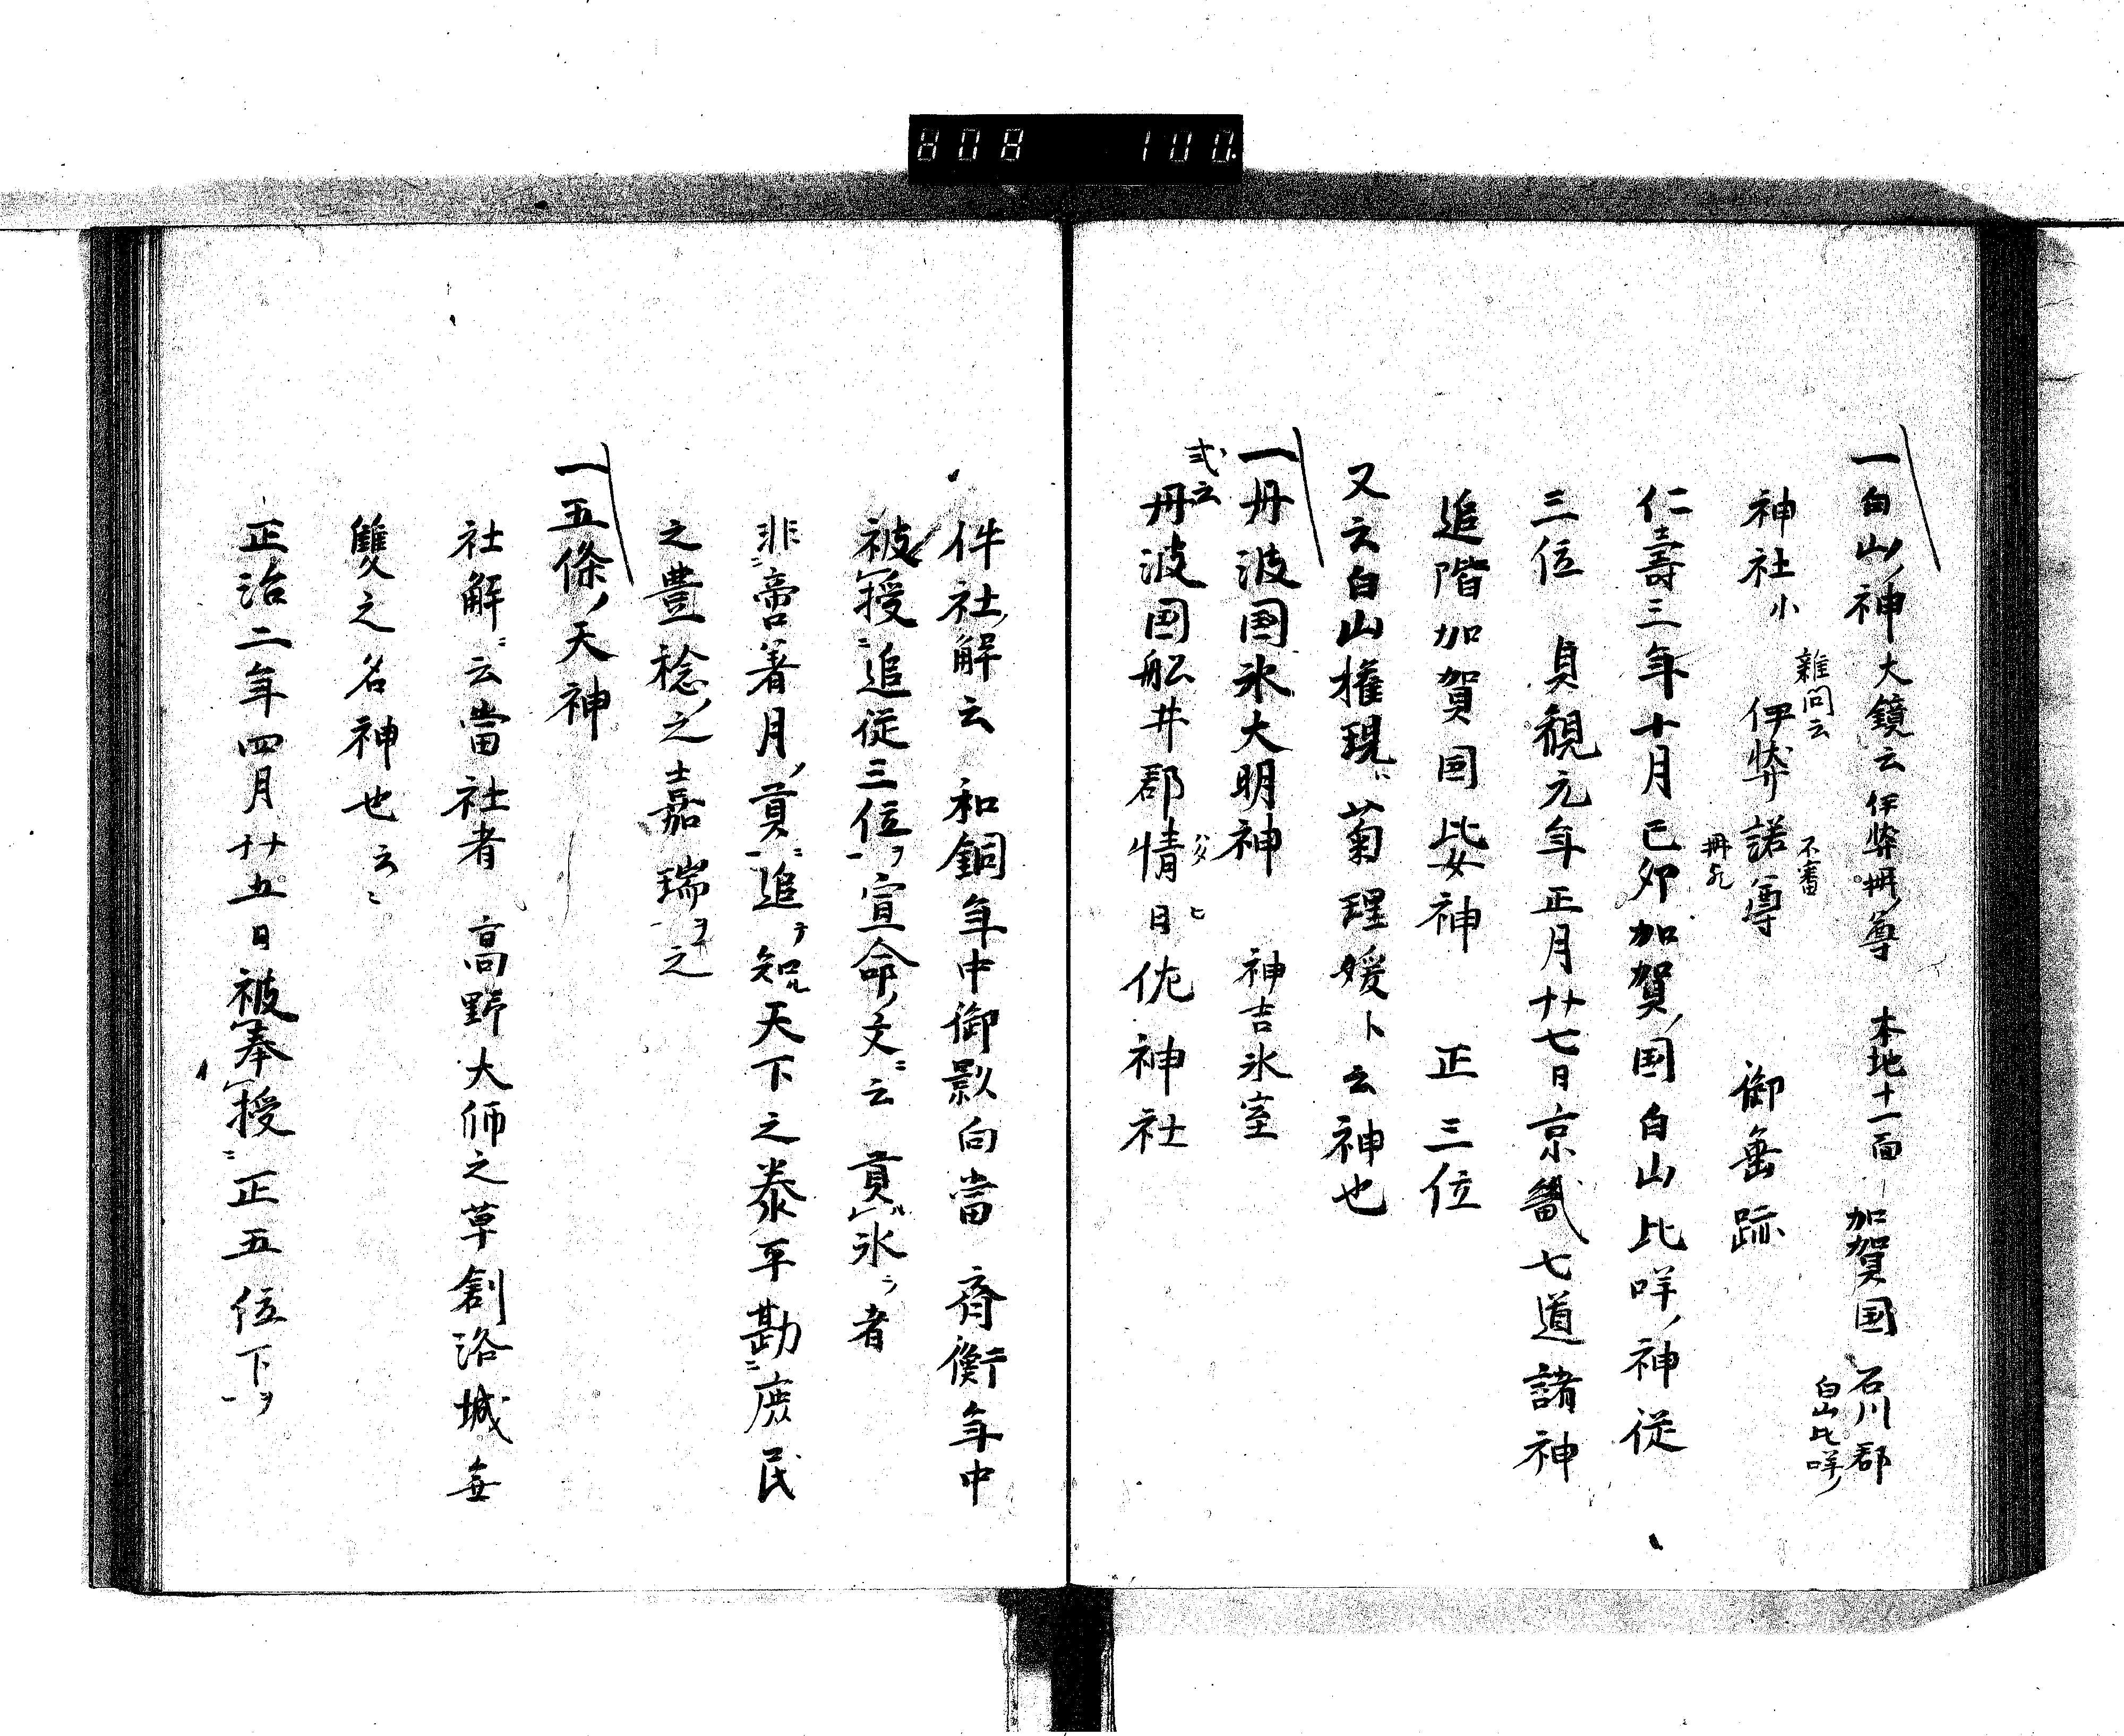 808 100.
一白山ノ神 大鏡云 伊弉冊ノ尊 本地十一面 加賀国 石川郡
白山比咩ノ
神社 小 伊弉諾尊 御垂跡
雑問云
不審
冊
仁壽三年十月己卯加賀ノ国白山比咩ノ神従
三位 貞観元年正月廿七日京畿七道諸神
追階加賀国 神 正三位
又云白山権現ニ菊理媛ト云神也
一丹波国氷大明神 神吉氷室
式云
丹波国船井郡情日 神社
件社ノ解云 和銅年中御影向當 斉衡年中
被授ニ追従三位ヲ一宣命ノ文ニ云 貢氷ヲ者
非ニ啻着月ノ貢ニ一追テ知ル天下之泰平勘ニ庶民
之豊稔ノ之嘉瑞ヲ一之
一五條ノ天神
社解ニ云當社者 高野大師之草創洛城無
雙之名神也云々
正治二年四月廿五日被奉授ニ正五位下ヲ一